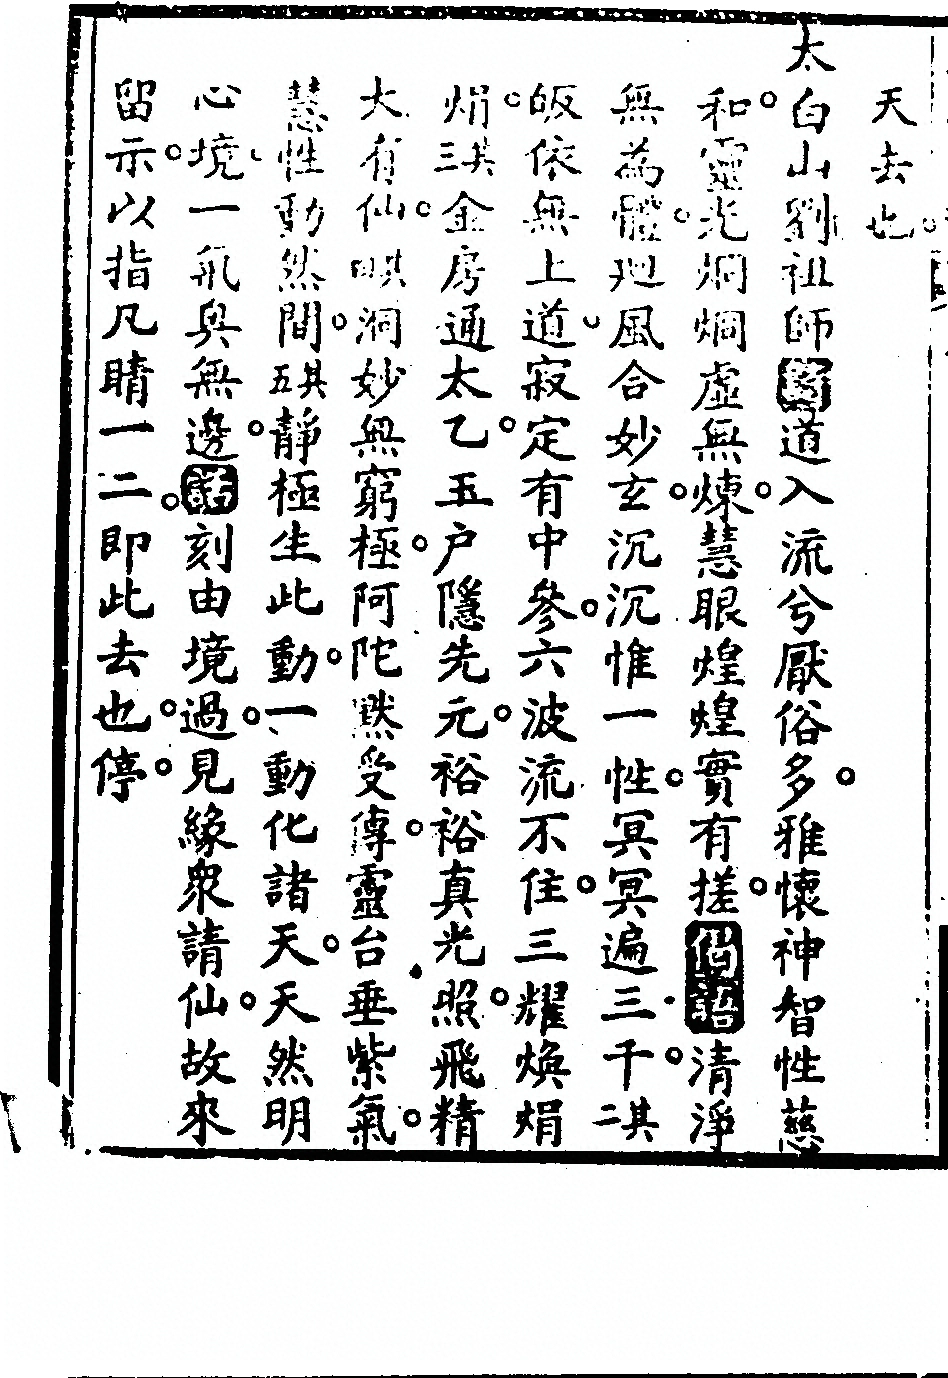 天去也。
太白山劉祖師詩道入流兮厭俗多。雅懷神智性慈
和。靈光烱烱虛無煉。慧眼煌煌實有搓。偈語清淨
無為體。廻風合妙玄。沉沉惟一性。冥冥遍三千。其二
皈依無上道。寂定有中參。六波流不住。三耀煥娟
娟。其三金房通太乙。五户隱先元。裕裕真光照。飛精
大有仙。其四洞妙無窮極。阿陀默受傳。靈台垂紫氣。
慧性動然間。其五靜極生此動。一動化諸天。天然明
心境、一氣與無邊。話刻由境過。見緣衆請仙。故來
留示。以指凡睛一二。即此去也。停。